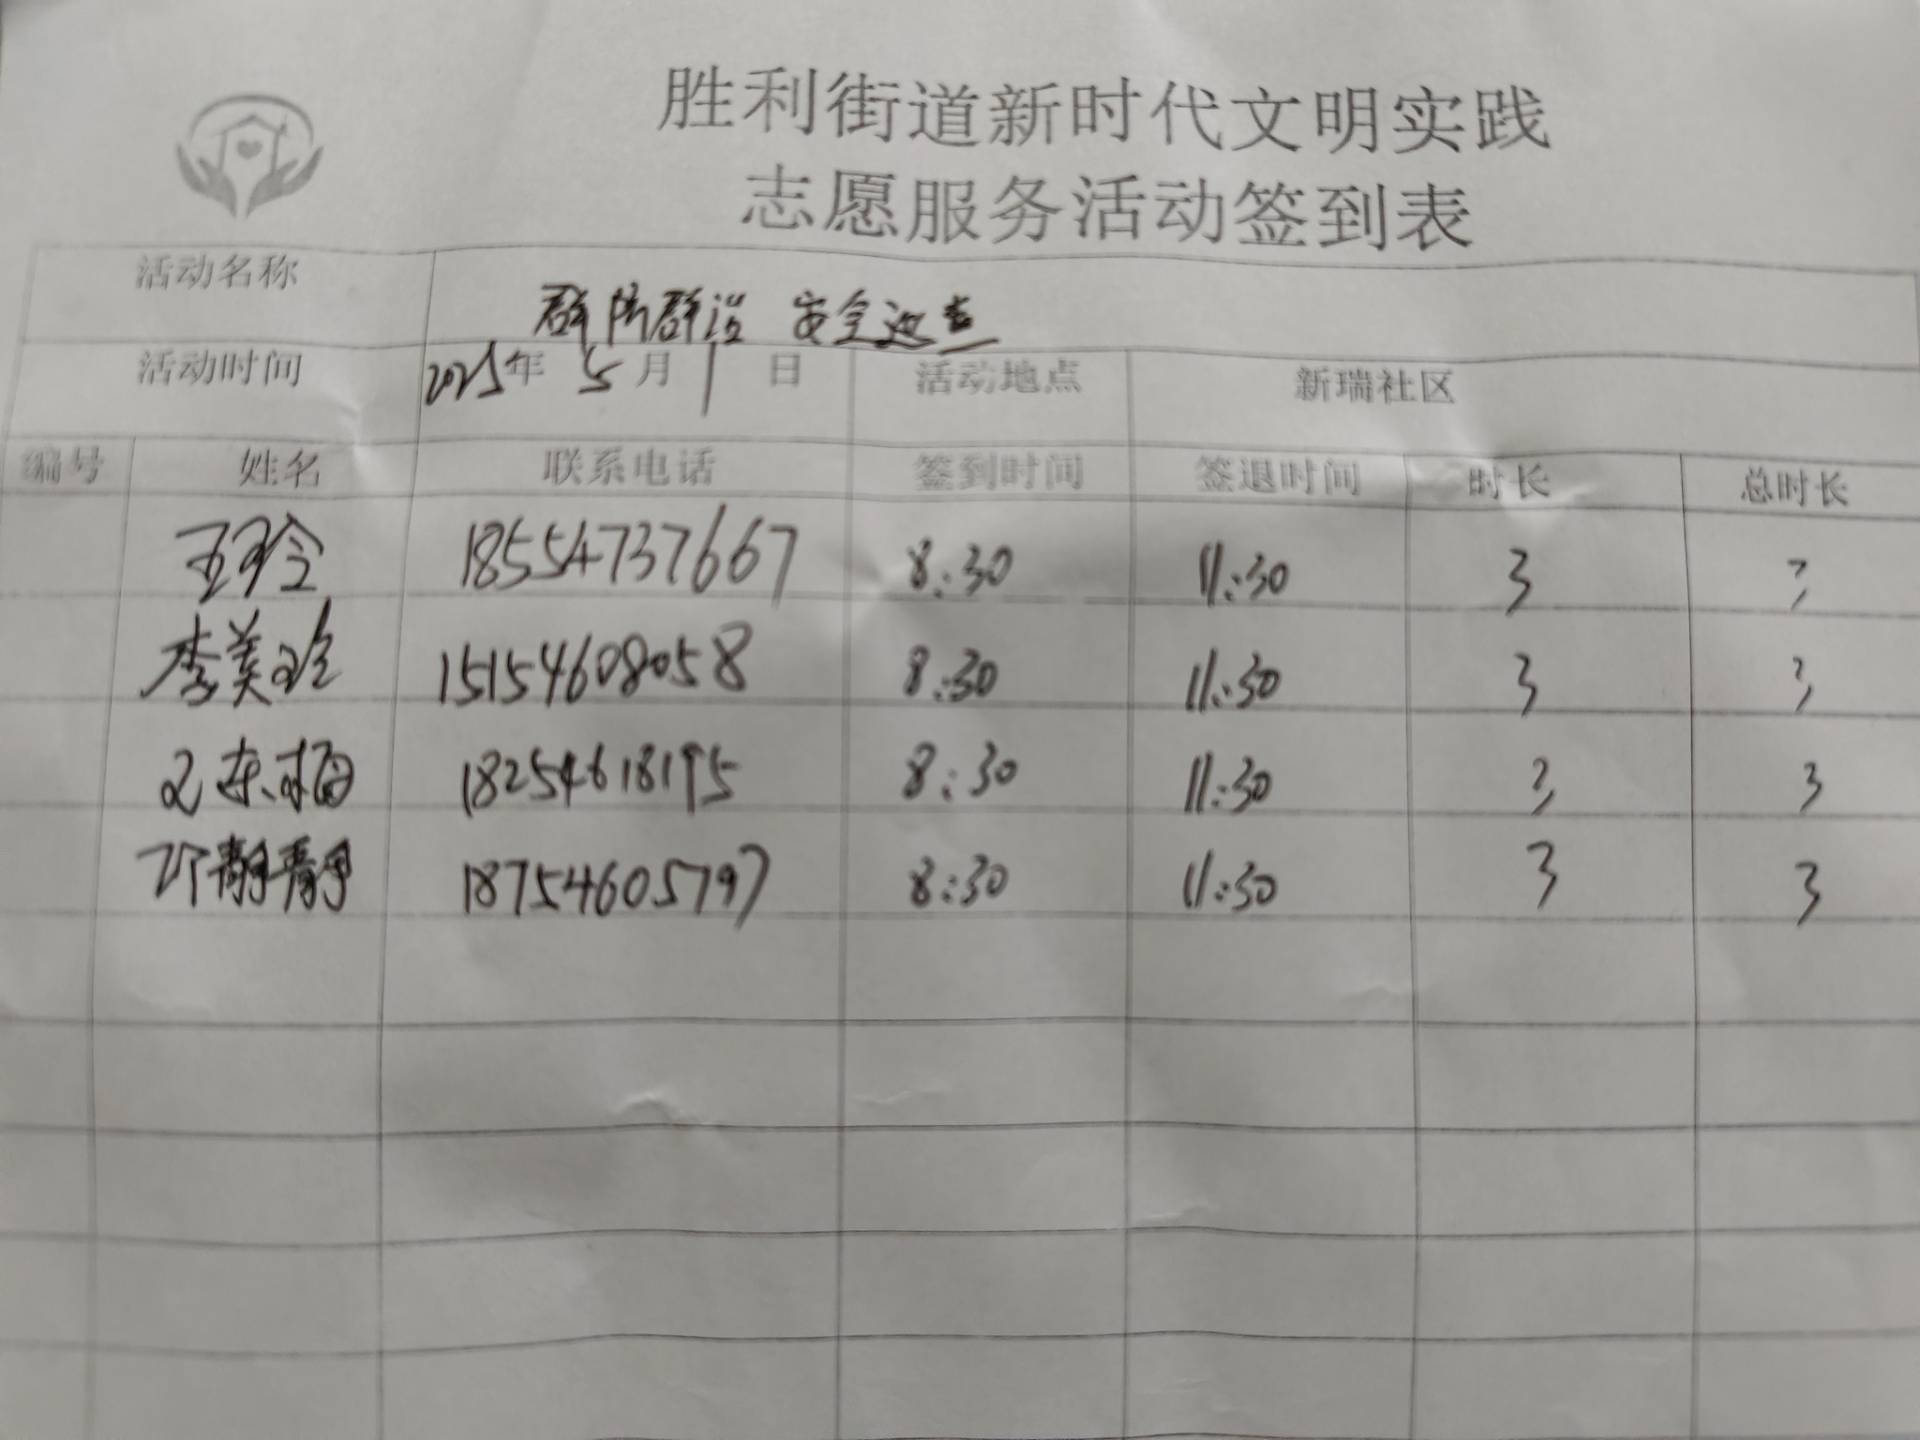 胜利街道新时代文明实践
志愿服务活动签到表
活动名称 群防群治 安全巡查
活动时间 2025年 5月 1日 活动地点 新瑞社区
编号 姓名 联系电话 签到时间 签退时间 时长 总时长
18554737667 8:30 11:30 3 3
李美玲 15154608058 8:30 11:30 3 3
东梅 18254618195 8:30 11:30 3 3
静静 18754605797 8:30 11:30 3 3